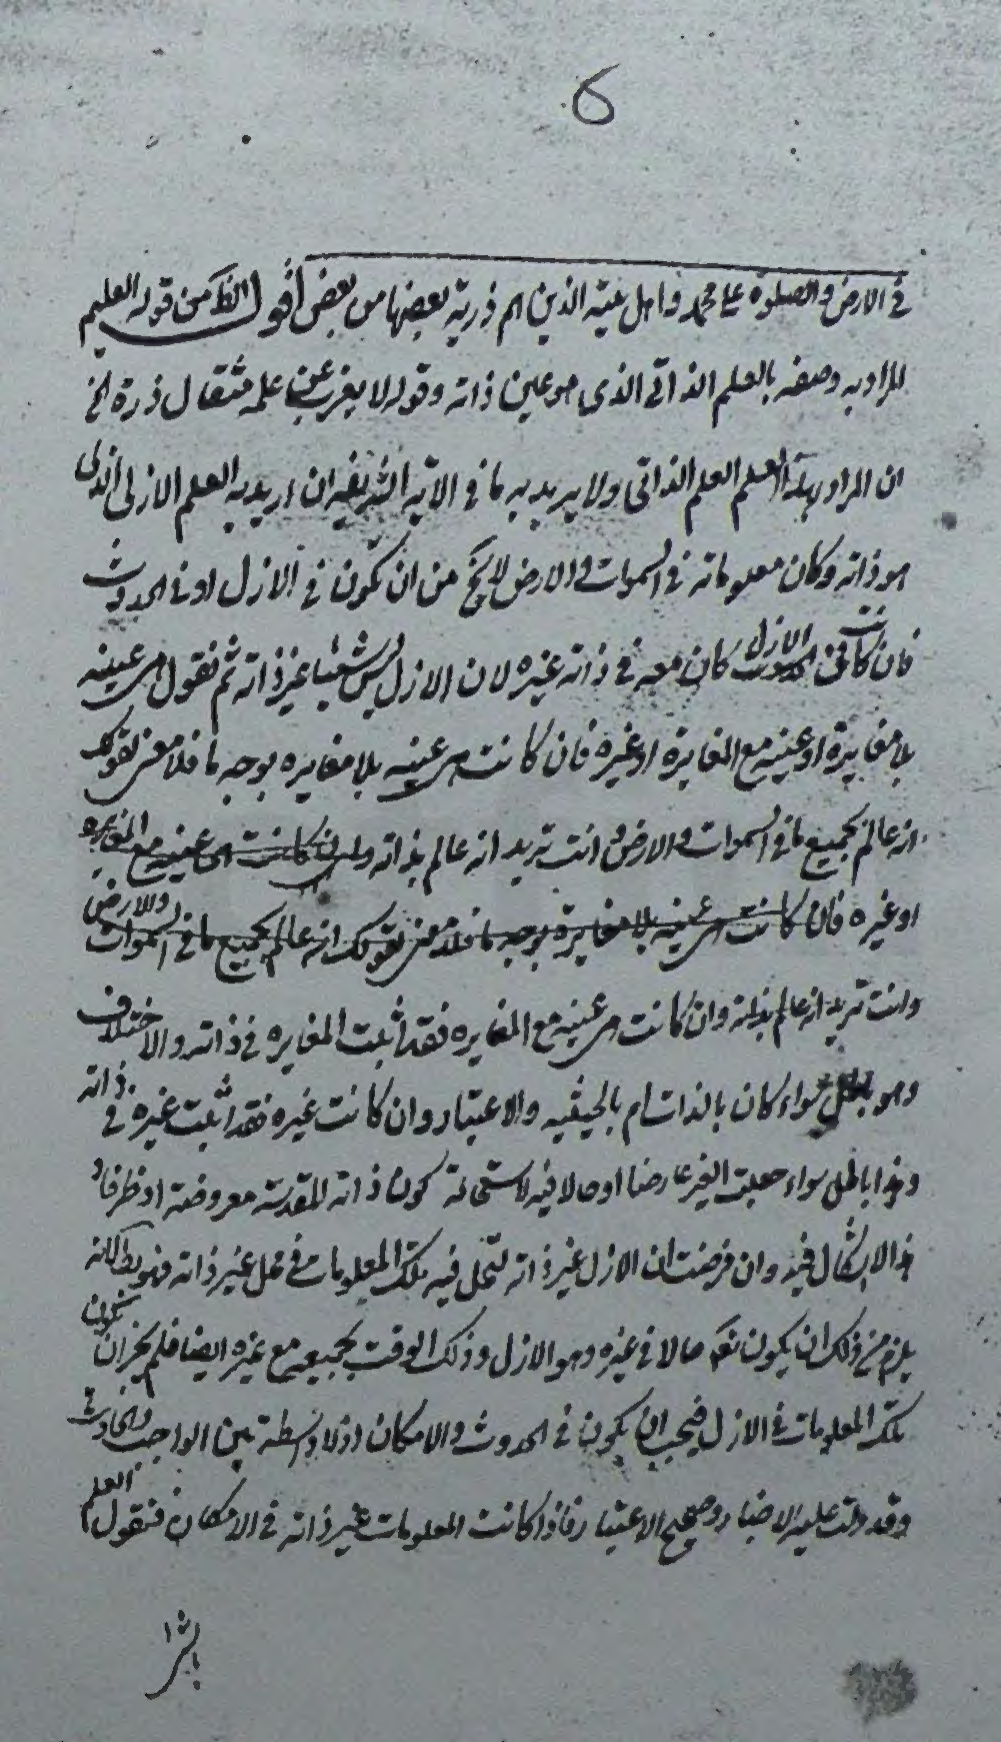 6
في الارض والصلوة علي محمد واهل بيته الذين هم ذرية بعضها من بعض اقول الظ من قوله العليم
المراد به وصفه بالعلم الذاتي الذي هو عين ذاته وقوله لا يعزب عن علمه مثقال ذرة الخ
ان المراد بهذا العلم العلم الذاتي ولا يريد به ما في الاية الشريفة ان اريد به العلم الازلي الذي
هو ذاته وكان معلوماته في السموات والارض لا يخ من ان تكون في الازل او في الحدوث
فان كانت في الازل كان معه في ذاته غيره لان الازل ليس شيئا غير ذاته ثم نقول هي عينه
بلا مغايرة او عينه مع المغايرة او غيره فان كانت هي عينه بلا مغايره بوجه ما فلا معنى لقولك
انه عالم بجميع ما في السموات والارض وانت تريد انه عالم بذاته وان كانت هي عينه مع المغايره
او غيره فان كانت هي عينه بلا مغايرة بوجه ما فلا معنى لقولك انه عالم بجميع ما في السموات والارض
وانت تريد انه عالم بذاته وان كانت هي عينه مع المغايره فقد اثبت المغايره في ذاته والاختلاف
وهو باطل سواء كان بالذات ام بالحيثيه والاعتبار وان كانت غيره فقد اثبت غيره في ذاته
وهذا باطل سواء جعلت الغير عارضا او حالا فيه لاستحالة كون ذاته المقدسة معروضة او ظرفا و
هذا الاشكال فيه وان فرضت ان الازل غير ذاته لتحل فيه تلك المعلومات في محل غير ذاته فهو بط لانه
يلزم من ذلك ان يكون تعالى حالا في غيره وهو الازل وذلك الوقت يجمعه مع غيره ايضا فلم يجز ان تكون
تلك المعلومات في الازل فيجب ان يكون في الحدوث والامكان اذ لا واسطة بين الواجب والحادث
وقد دلت عليه الاخبار وصحيح الاعتبار فاذا كانت المعلومات غير ذاته في الامكان فنقول العلم